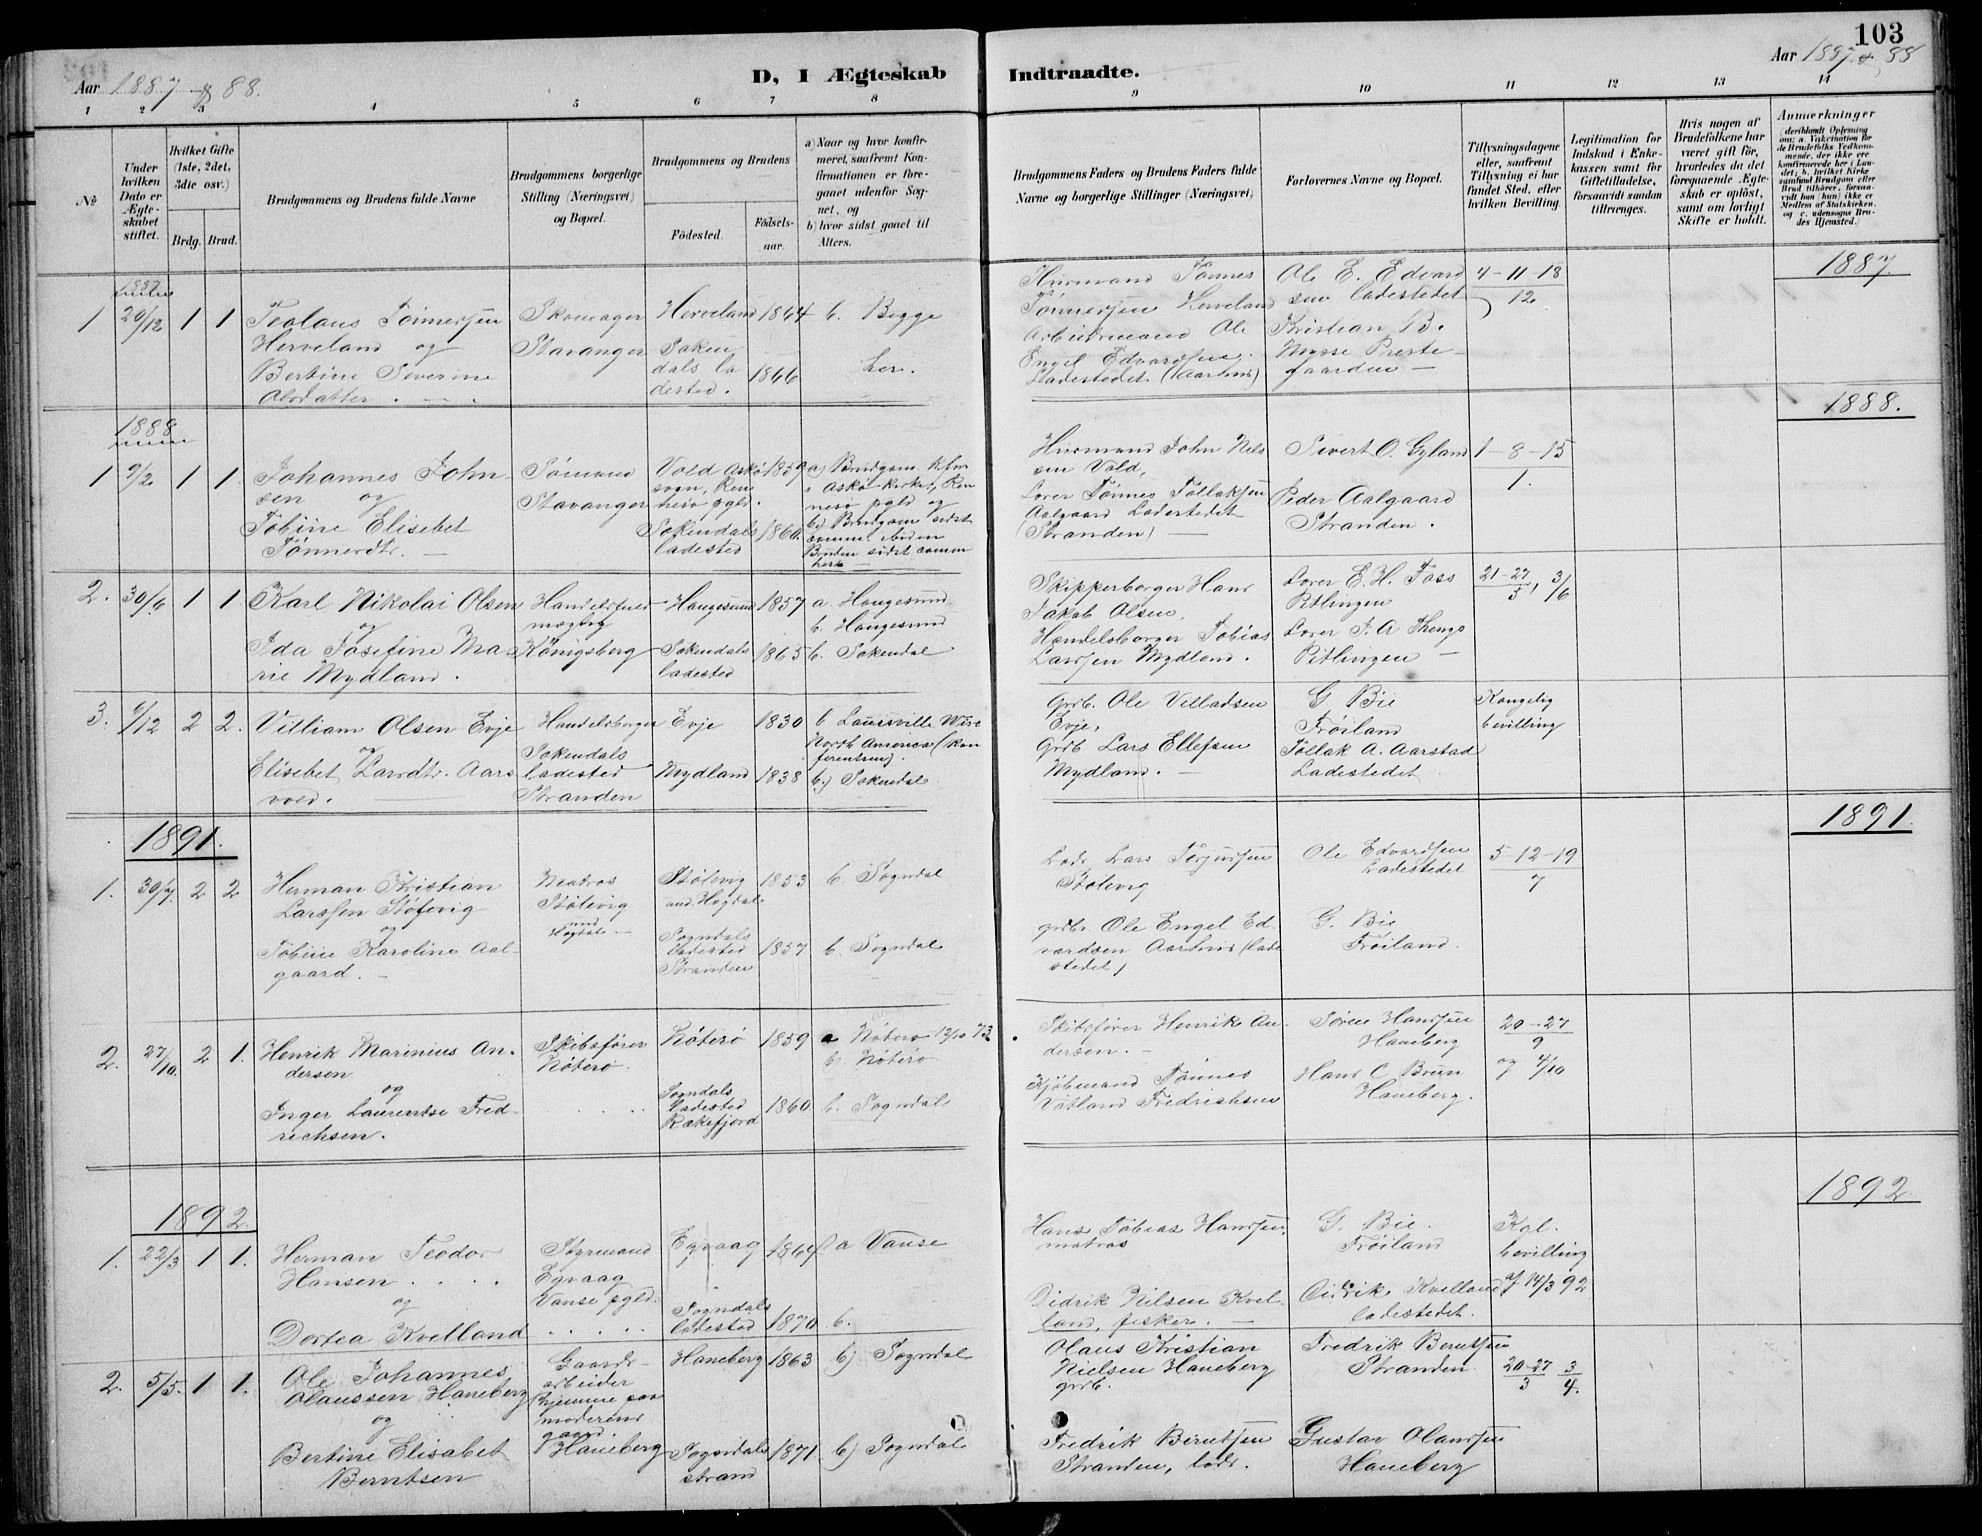 103
Aar 1887 & 88.
D, I Ægteskab
Indtraadte.
Aar 1887 & 88
1 2 3 4 5 6 7 8
9 10 11 12 13 14
№
Under hvilken Dato er Ægteskabet stiftet.
Hvilket Gifte (1ste, 2det, 3die osv.)
Brdg. Brud.
Brudgommens og Brudens fulde Navne
Brudgommens borgerlige Stilling (Næringsvei) og Bopæl.
Brudgommens og Brudens
Födested.
Födselsaar.
a) Naar og hvor konfirmeret, saafremt Konfirmationen er foregaaet udenfor Sognet, og
b) hvor sidst gaaet til Alters.
Brudgommens Faders og Brudens Faders fulde Navne og borgerlige Stillinger (Næringsvei)
Forlovernes Navne og Bopæl.
Tillysningsdagene eller, saafremt Tillysning ei har fundet Sted, efter hvilken Bevilling.
Legitimation for Indskud i Enkekassen samt for Giftetilladelse, forsaavidt saadan tiltrænges.
Hvis nogen af Brudefolkene har været gift för, hvorledes da det foregaaende Ægteskab er oplöst, samt om lovligt Skifte er holdt.
Anmærkninger
(deriblandt Oplysning om: a. Vakcination for de Brudefolks Vedkommende, der ikke ere konfirmerede her i Landet; b. hvilket Kirkesamfund Brudgom eller Brud tilhörer, forsaavidt han (hun) ikke er Medlem af Statskirken, og c. udensogns Brudes Hjemsted.
1887
1887
1 29/12 1 1
Teolaus Tönnersen
Herveland og
Bertine Severine
Olsdatter.
Skomager
Stavanger
Herveland 1864
Soken
dals la
destted. 1866
b. Begge
her.
Husmand Tönnes
Tönnersen Herveland
Arbeidsmand Ole
Engel Edvardsen
Ladestedet. (Aarhus)
Ole E. Edvard
sen ladestedet
Kristian B.
Mysse Preste-
gaarden
4-11-18
12
1888
1888.
1 9/2 1 1.
Johannes John-
sen og
Tobine Elisebet
Tönnerdtr.
Sömand
Stavanger
Vold Askö 1859
sogn, Ren
nesö pgld.
Sokendals 1866.
ladested
a) Brudgom kfm
i Askö kirke, Ren
nesö pgld og
b) Brudgom sidst
comm. ibiden
Bruden sidst comm
her
Husmand John Nils
sen Vold,
Loser Tönnes Tollaksen
Aalgaard Ladestedet
(Stranden)
Sivert O. Gyland
Peder Aalgaard
Stranden.
1-8-15
1.
2. 30/6 1 1
Karl Nikolai Olsen
og
Ida Josefine Ma
rie Mydland.
Handelsfuld-
mægtig
Köngsberg
Haugesund 1857
Sokendals 1865
ladested
a. Haugesund
b. Haugesund
b. Sokendal
Skipperborger Hans
Jakob Olsen.
Handelsborger Tobias
Larssen Mydland.
Loser E. H. Foss
Pitlingen
Loser J. A. Thengs
Pitlingen
21-27/5, 3/6
3. 9/12 2 2.
Villiam Olsen Evje
og
Elisebet Larsdtr. Aars
vold.
Handelsborger
Sokendals
ladested
Stranden
Evje 1830
Mydland 1838
b Laursville Wisc
North America (kon
ferentsen).
b.) Sokendal
Grdb. Ole Villadsen
Evje,
Grdb Lars Ellefsen
Mydland.
G. Bie
Fröiland
Tollak A. Aarstad
Ladestedet
Kongelig
bevilling
1891.
1891.
1. 30/7 2 2
Herman Kristian
Larssen Stölevig
og
Tobine Karoline Aal-
gaard.
Matros
Stölevig
und
Högdal
Stölevig 1853
und. Högdal
Sogndals
Ladested 1857
Stranden
b. Sogndal
b. Sogndal
Lods, Lars Torjussen
Stölevig
grdbr. Ole Engel Ed-
vardsen Aarhus (lade
stedet)
Ole Edvardsen
Ladestedet
G. Bie
Fröiland.
5-12-19
7
2. 27/10. 2 1.
Henrik Marinius An-
dersen
og
Inger Laurentse Fred-
richsen.
Skibsförer
Nöterö.
Nöterö 1859
Sogndals
Ladested 1860
Rækefjord
a Nöterö 12/10 73
b) Nöterö
b. Sogndal
Skibsförer Henrik An-
dersen.
Kjöbmand Tönnes
Vatland Fredrichsen
Sören Hanssen
Haneberg
Hans C Brun
Haneberg.
20-27
9
og 4/10
1892.
1892
1. 22/3 1 1.
Herman Teodor
Hansen
og
Dortea Kvelland
Styrmand
Egvaag
Vanse pgld.
Egvaag 1864
Sogndals
ladested 1870
a Vanse
b.
Hans Tobias Hanssen
matros
Didrik Nilsen Kvel-
land, fisker.
G. Bie.
Fröiland
Didrik Kvelland
ladestedet.
Kgl.
bevilling
af 14/3 92
2. 5/5. 1 1.
Ole Johannes
Olaussen Haneberg
og
Bertine Elisabet
Berntsen
Gaards-
arbeider
(hjemme paa
moderens
gaard.
Haneberg
Haneberg 1863
Sogndals 1871
strand
b) Sogndal
b) Sogndal
Olaus Kristian
Nielsen Haneberg
grdb.
Fredrik Berntsen
Stranden, lods.
Fredrik Berntsen
Stranden
Gustav Olaussen
Haneberg
20-27/3 3/4.